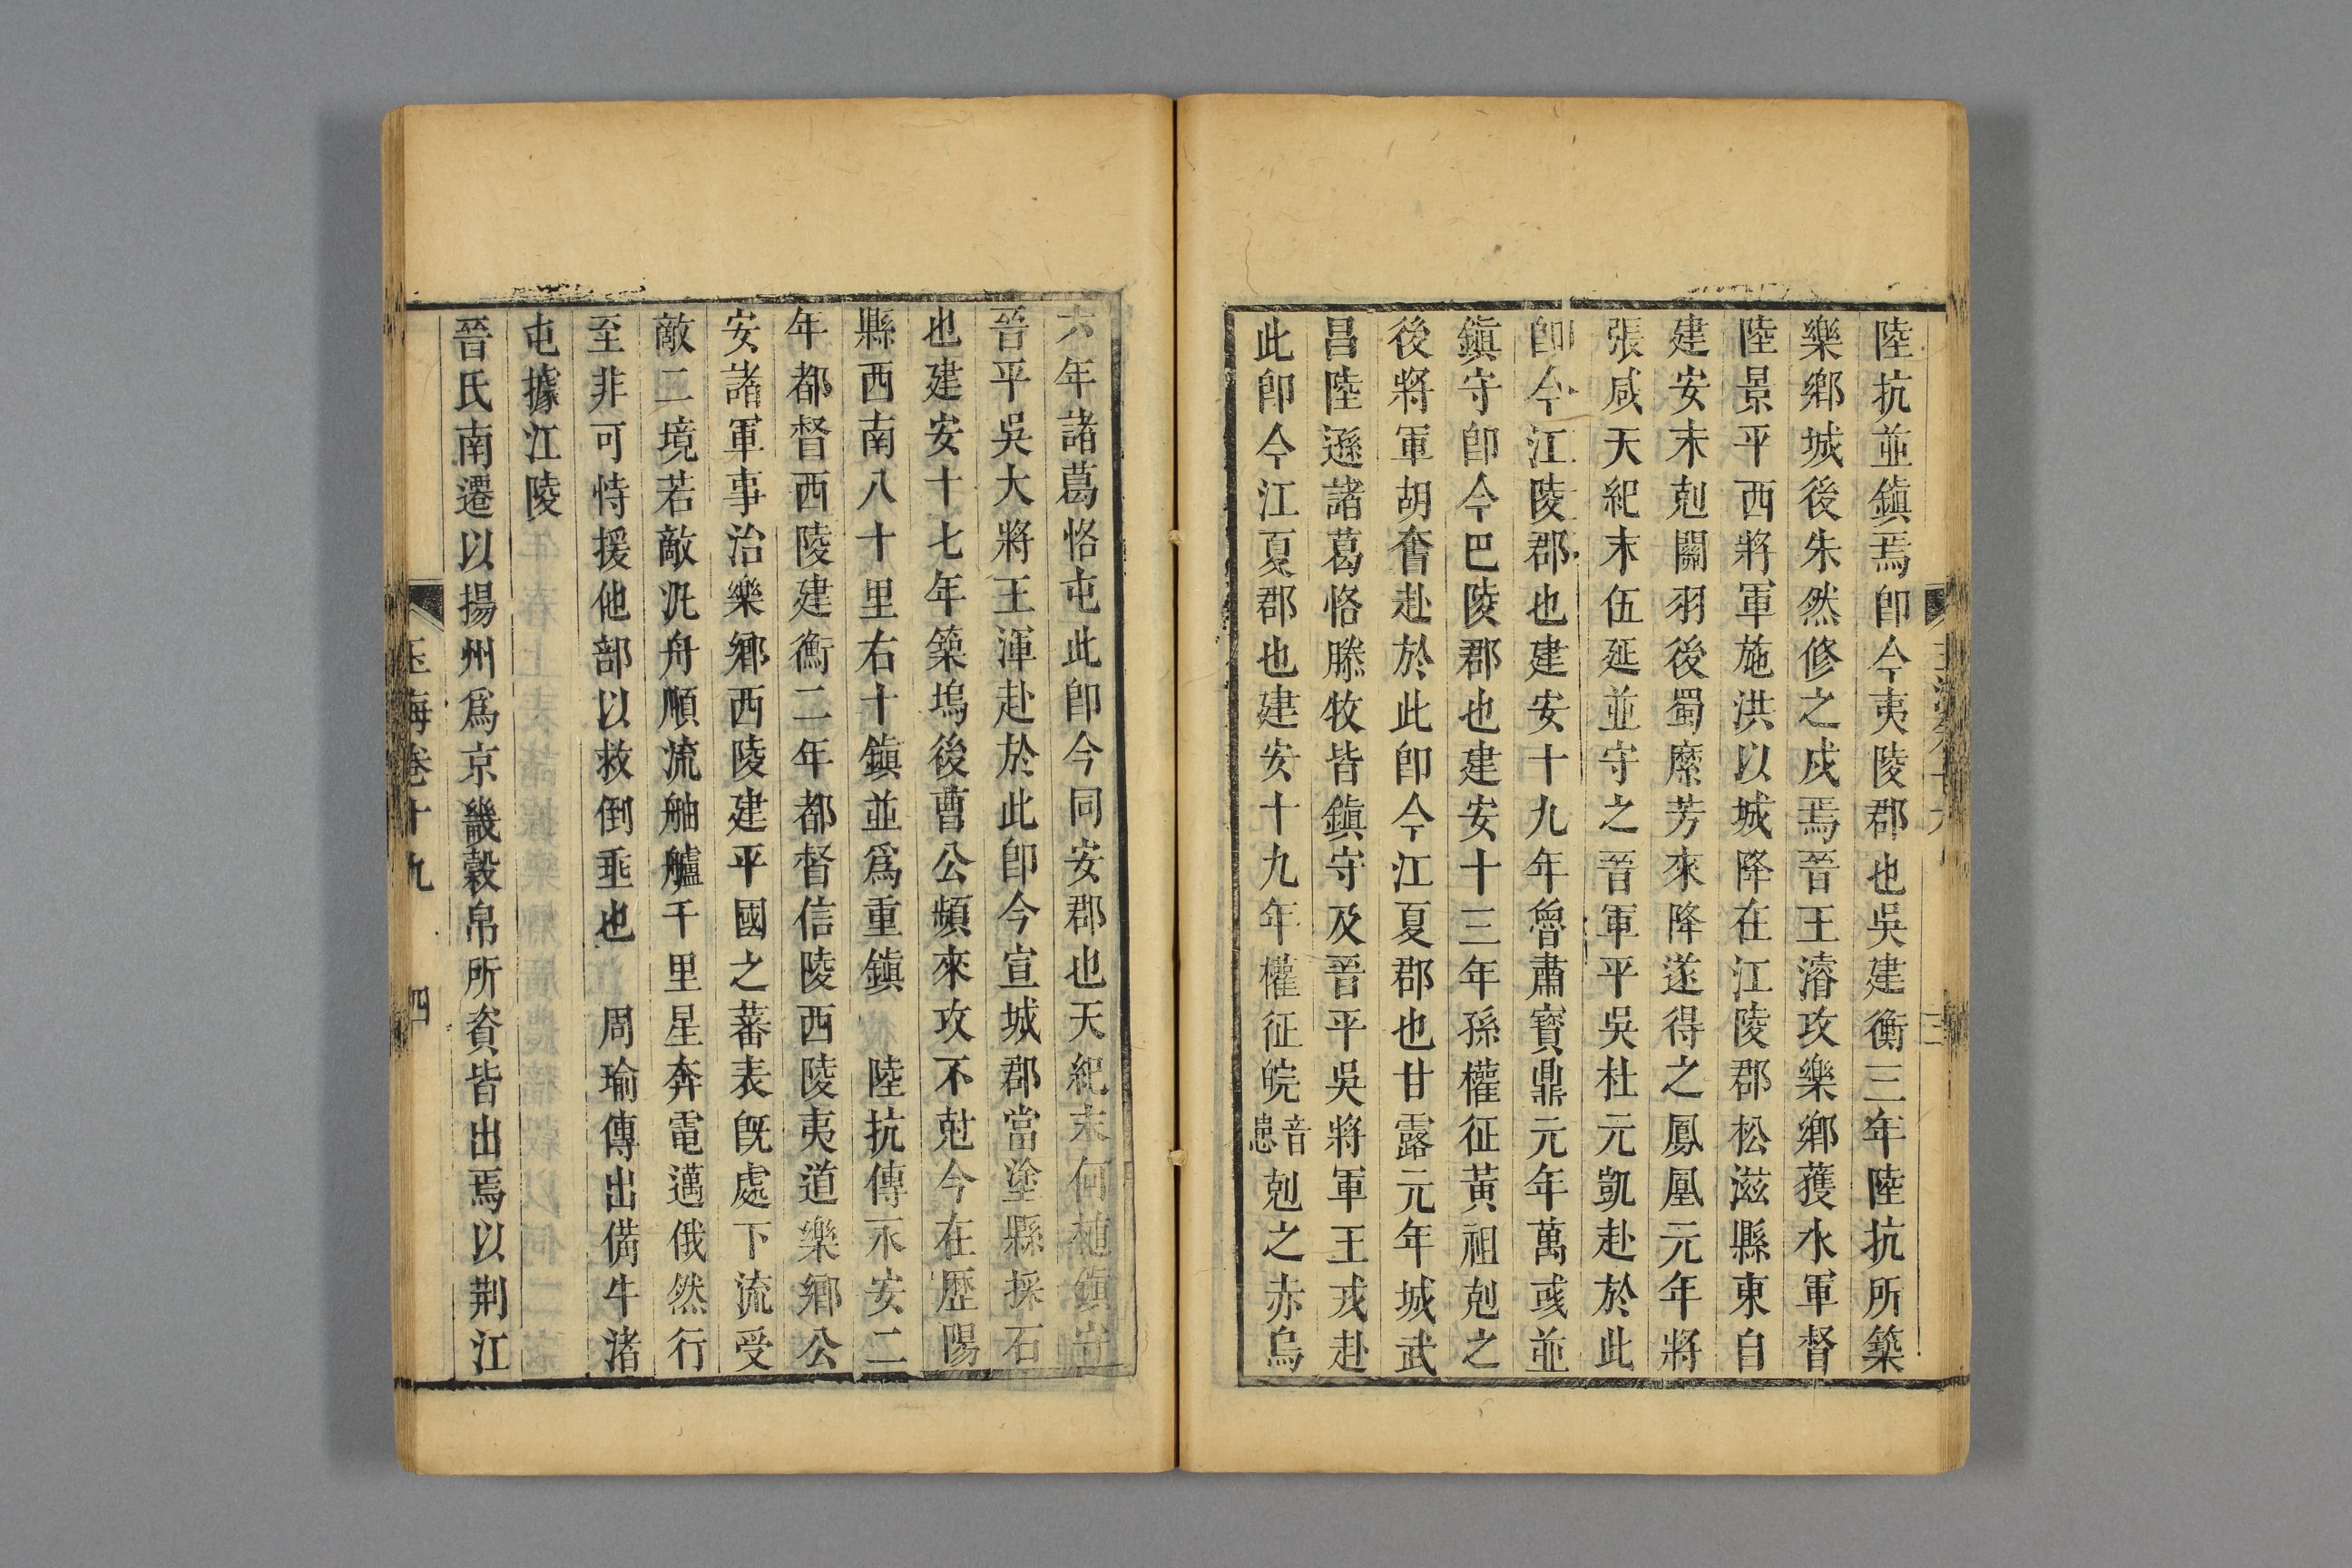 陸抗並鎭焉卽今夷陵郡也吳建衡三年陸抗所築
樂鄉城後朱然修之戍焉晉王濬攻樂鄉獲水軍督
陸景平西將軍施洪以城降在江陵郡松滋縣東自
建安末剋關羽後蜀糜芳來降遂得之鳳凰元年將
張咸天紀末伍延並守之晉軍平吳杜元凱赴於此
卽今江陵郡也建安十九年魯肅寳鼎元年萬彧並
鎭守卽今巴陵郡也建安十三年孫權征黃祖剋之
後將軍胡奮赴於此卽今江夏郡也甘露元年城武
昌陸遜諸葛恪滕牧皆鎭守及晉平吳將軍王戎赴
此卽今江夏郡也建安十九年權征皖音患剋之赤烏
六年諸葛恪屯此卽今同安郡也天紀末何植鎭守
晉平吳大將王渾赴於此卽今宣城郡當塗縣採石
也建安十七年築塢後曹公頻來攻不尅今在歷陽
縣西南八十里右十鎭並爲重鎭 陸抗傳永安二
年都督西陵建衡二年都督信陵西陵夷道樂鄉公
安諸軍事治樂鄉西陵建平國之蕃表旣處下流受
敵二境若敵汎舟順流舳艫千里星奔電邁俄然行
至非可恃援他部以救倒垂也 周瑜傳出備牛渚
屯據江陵
晉氏南遷以揚州爲京畿穀帛所資皆出焉以荆江
玉海卷十九 四